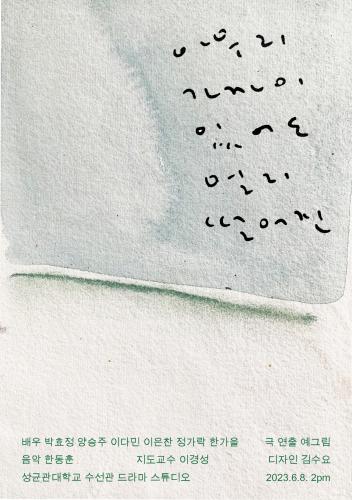 아무리
가까이
있어도
멀리
떨어진
배우 박효정 양승주 이다민 이은찬 정가락 한가을 극 연출 예그림
음악 한동훈 지도교수 이경성 디자인 김수요
성균관대학교 수선관 드라마 스튜디오 2023.6.8. 2pm